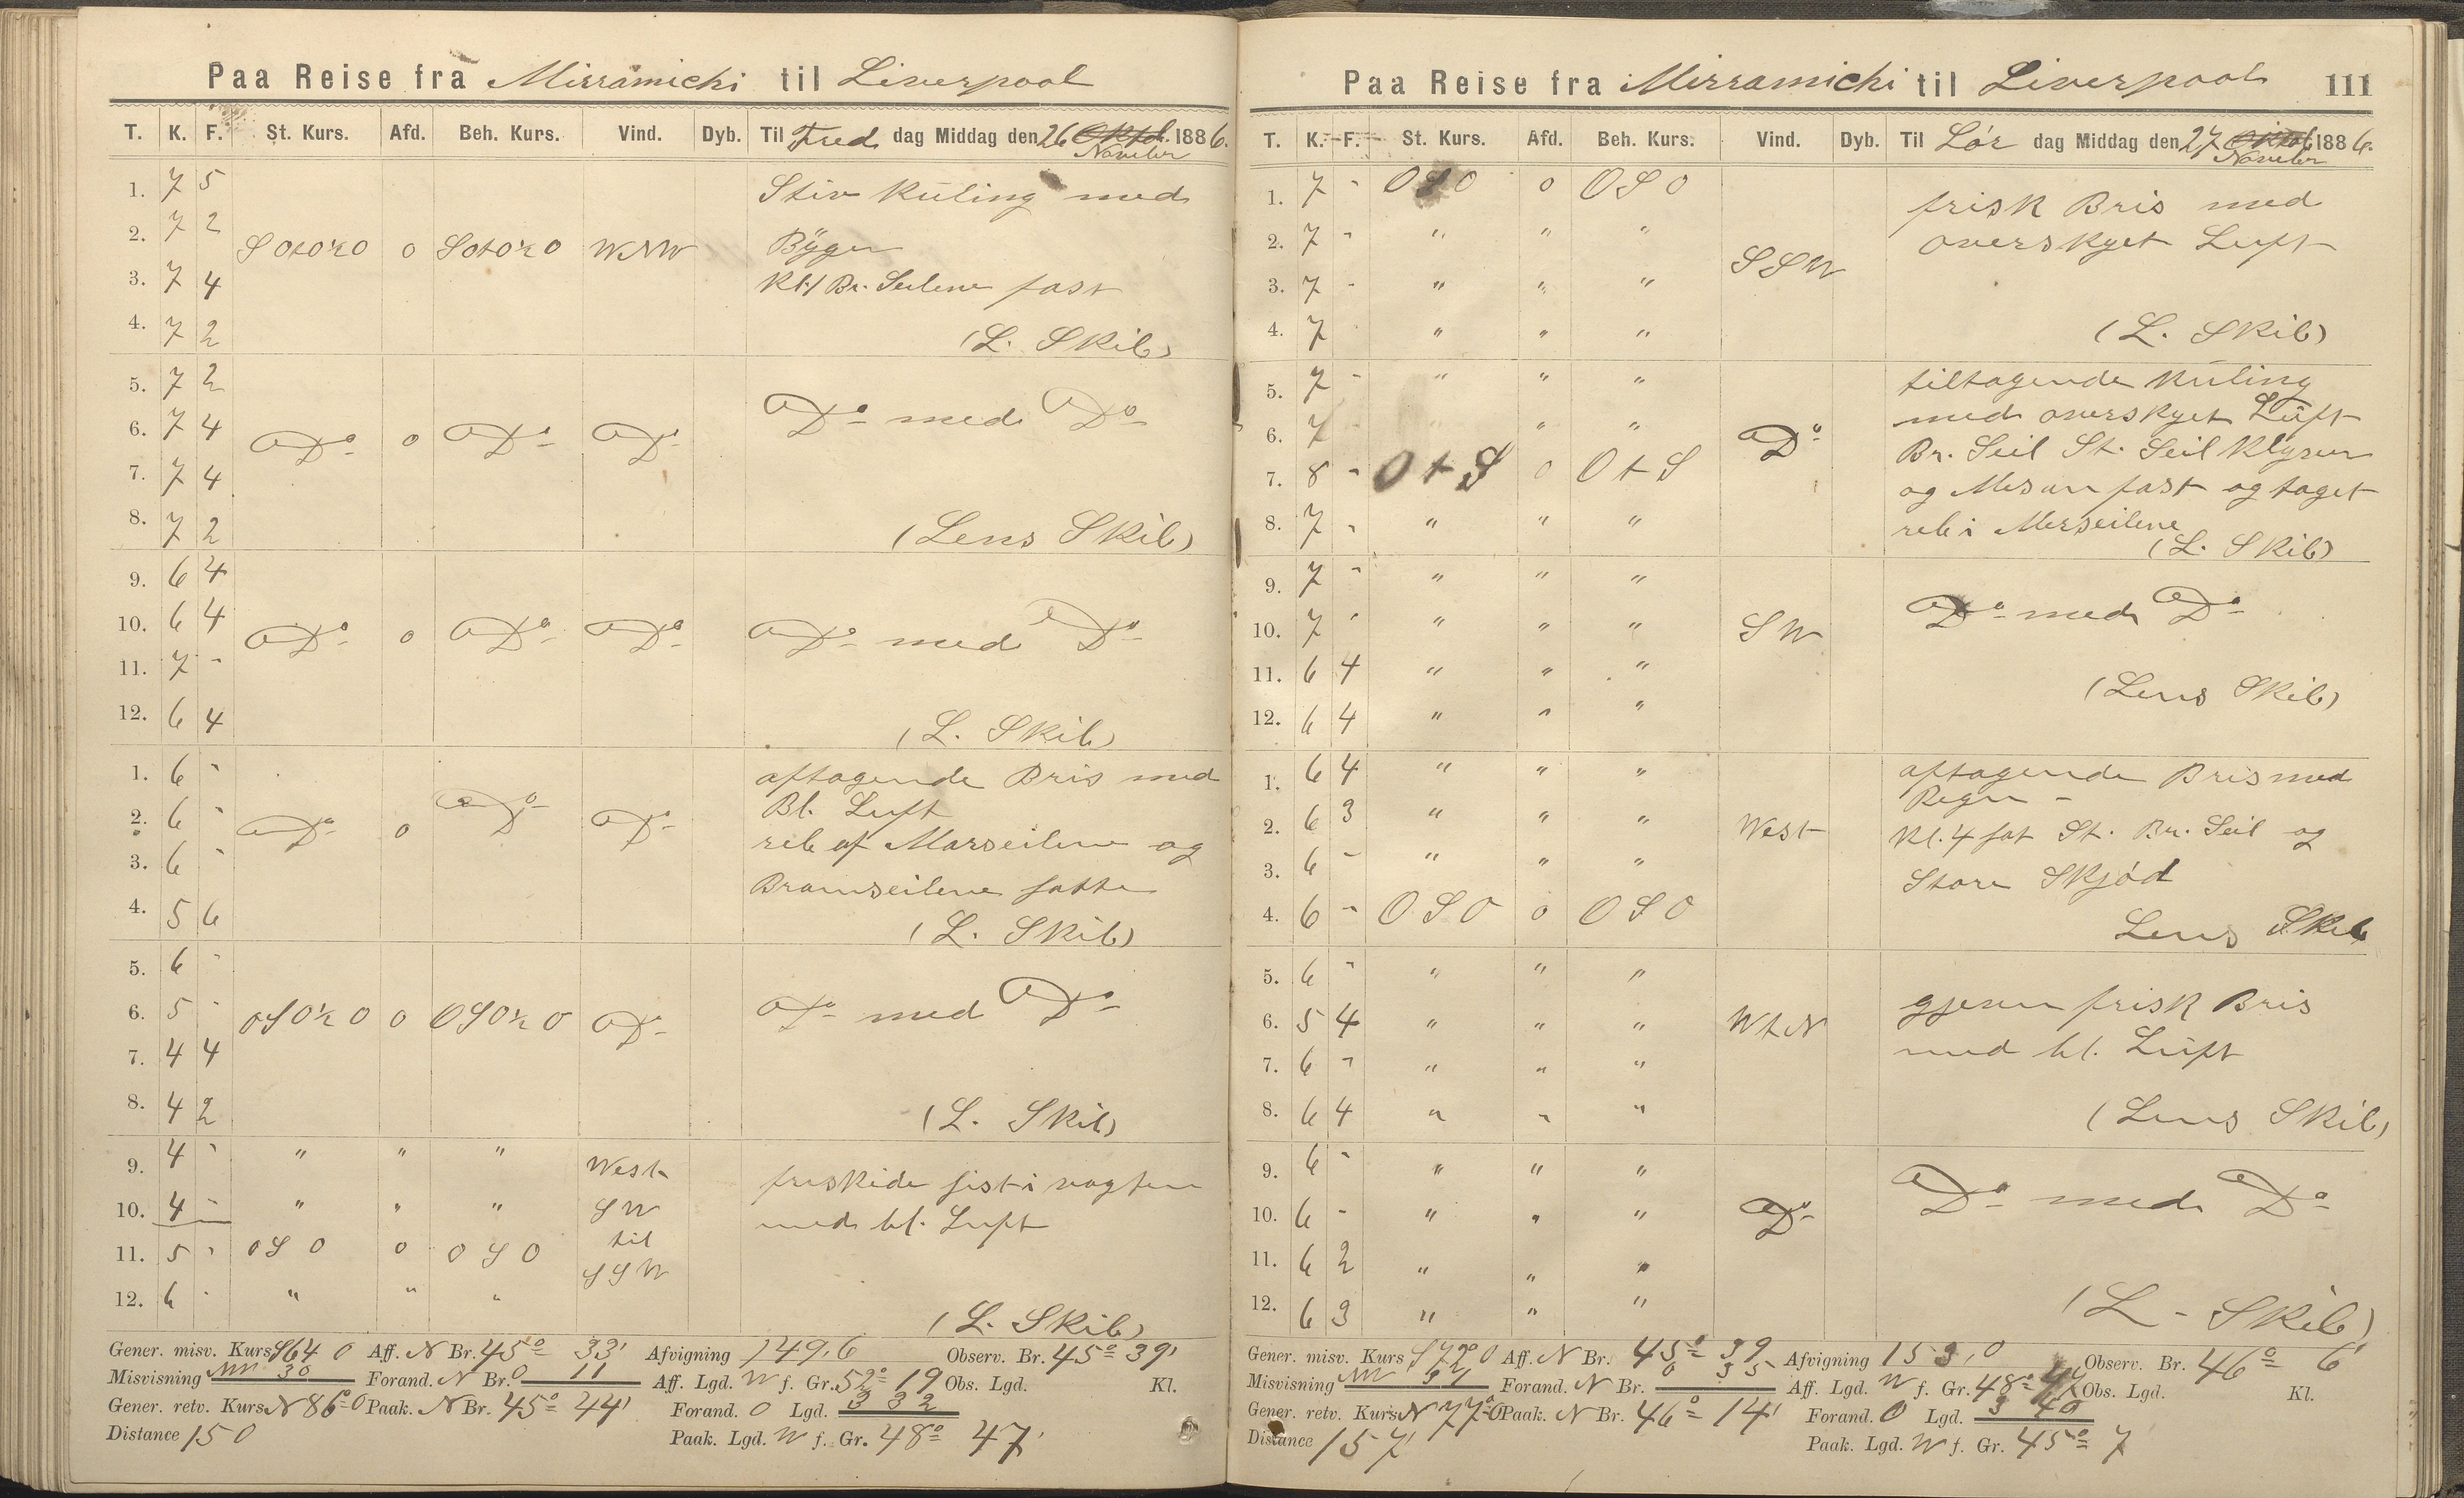 Paa Reise fra Mirramichi til Liverpool
T. K. F. St. Kurs. Afd. Beh. Kurs. Vind. Dyb. Til Fred dag Middag den 26 Oktob. 1886.
November
1. 7 5 Stiv Kuling med
2. 7 2 SOtO½O 0 SOtO½O WNW Byger
3. 7 4 Kl. 1 Br. Seilene fast
4. 7 2 (L. Skib)
5. 7 2
6. 7 4 Do 0 Do Do Do med Do
7. 7 4
8. 7 2 (Lens Skib)
9. 6 4
10. 6 4 Do 0 Do Do Do med Do
11. 7 -
12. 6 4 (L. Skib)
1. 6 - aftagende Bris med
2. 6 - Do 0 Do Do Bl. Luft
3. 6 - reb af Marseilene og
Bramseilene satte
4. 5 6 (L. Skib)
5. 6 -
6. 5 - OSO½O 0 OSO½O Do Do med Do
7. 4 4
8. 4 2 (L. Skib)
9. 4 - " " " West friskede sist i vagten
10. 4 - " " " SW med bl. Luft
11. 5 - OSO 0 OSO til
SSW
12. 6 - " " " (L. Skib)
Gener. misv. Kurs S 64 O Aff. N Br. 45° 33' Afvigning 149,6 Observ. Br. 45° 39'
Misvisning NW 30 Forand. N Br. 0 11 Aff. Lgd. W f. Gr. 52° 19 Obs. Lgd. Kl.
Gener. retv. Kurs N 86° O Paak. N Br. 45° 44' Forand. O Lgd. 3 32
Distance 150 Paak. Lgd. W f. Gr. 48° 47'
Paa Reise fra Mirramichi til Liverpool 111
T. K. F. St. Kurs. Afd. Beh. Kurs. Vind. Dyb. Til Lör dag Middag den 27 Oktob 1886.
November
1. 7 - OSO 0 OSO frisk Bris med
2. 7 - " " " overskyet Luft
3. 7 - " " " SSW
4. 7 " " " (L. Skib)
5. 7 - " " " tiltagende Kuling
6. 7 - " " " Do med overskyet Luft
Br. Seil St. Seil Klyver
7. 8 - OtS 0 OtS og Mesan fast og taget
8. 7 - " " " reb i Merseilene
(L. Skib)
9. 7 - " " "
10. 7 - " " " SW Do med Do
11. 6 4 " " " (Lens Skib)
12. 6 4 " " "
1. 6 4 " " " aftagende Bris med
Regn -
2. 6 3 " " " West Kl. 4 sat St. Br. Seil og
3. 6 - " " " Store Skjöd
4. 6 - OSO 0 OSO Lens Skib
5. 6 - " " "
6. 5 4 " " " WtN gjevn frisk Bris
7. 6 - " " " med bl. Luft
8. 6 4 " " " (Lens Skib)
9. 6 - " " "
10. 6 - " " " Do Do med Do
11. 6 2 " " "
12. 6 3 " " " (L - Skib)
Gener. misv. Kurs S 72° O Aff. N Br. 45° 39 Afvigning 153,0 Observ. Br. 46° 6'
Misvisning NW Forand. N Br. 0 35 Aff. Lgd. W f. Gr. 48° 47 Obs. Lgd. Kl.
Gener. retv. Kurs N 77° O Paak. N Br. 46° 14' Forand. O Lgd. 3 40
Distance 157' Paak. Lgd. W f. Gr. 45° 7